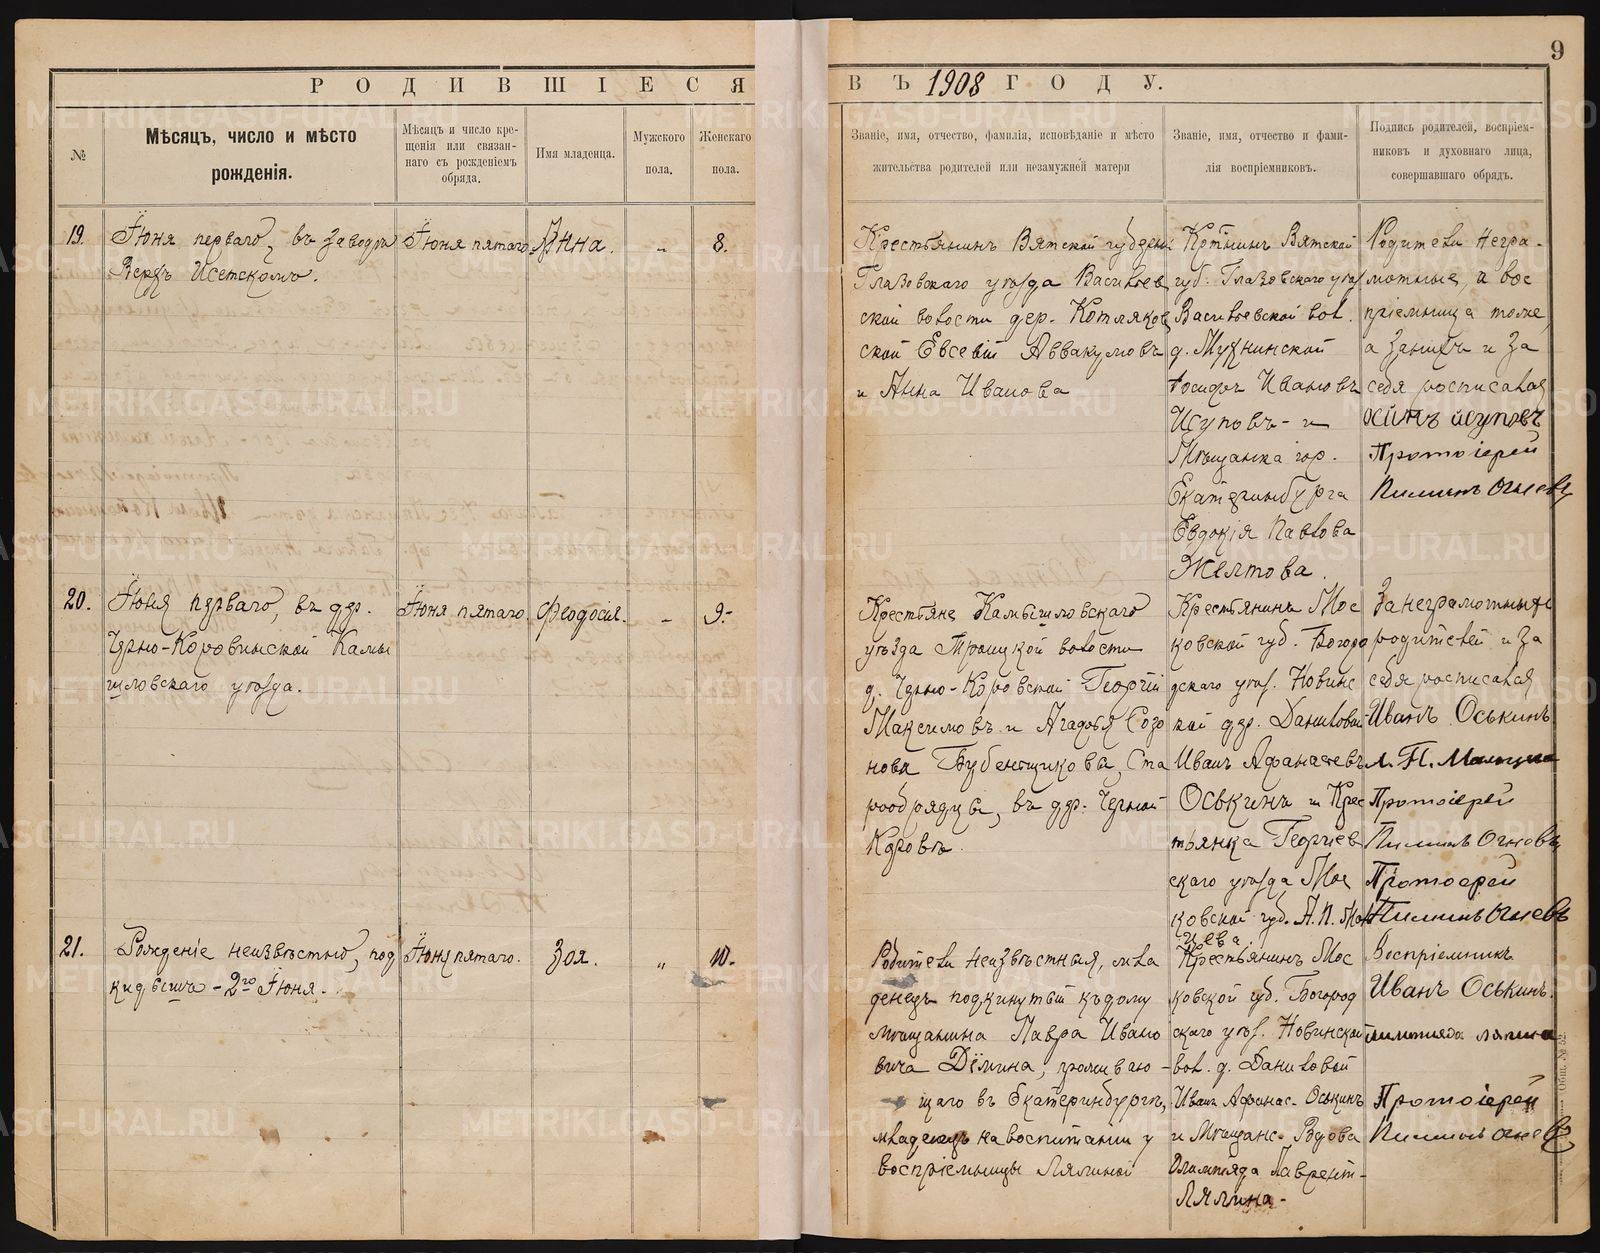 9
РОДИВШІЕСЯ ВЪ 1908 ГОДУ.
№
Мѣсяцъ, число и мѣсто
рожденія.
Мѣсяцъ и число кре-
щенія или связан-
наго съ рожденіемъ
обряда.
Имя младенца.
Мужского
пола.
Женскаго
пола.
Званіе, имя, отчество, фамилія, исповѣданіе и мѣсто
жительства родителей или незамужней матери
Званіе, имя, отчество и фами-
лія воспріемниковъ.
Подпись родителей, воспріем-
никовъ и духовнаго лица,
совершавшаго обрядъ.
19.
Іюня перваго, въ заводѣ
Верхъ Исетскомъ.
Іюня пятаго.
Анна.
„
8.
Крестьянинъ Вятской
Глазовскаго уѣзда Васильев
ской волости дер. Котляков
ской Евсевій Аввакумовъ
и Анна Иванова
Крт̃нинъ Вятской
губ. Глазовскаго уѣз
Васильевской вол.
д.
Іосифъ Ивановъ
Исуповъ - и
Мѣщанка гор.
Екатеринбурга
Евдокія Павлова
Желтова.
Родители негра-
мотные, а вос
пріемница тоже,
а за нихъ и за
себя росписался
Исуповъ
Протоіерей
Пименъ Огневъ
20.
Іюня перваго, въ дер.
Черно-Коровинской Камы
шловскаго уѣзда.
Іюня пятаго.
Феодосія.
„
9.-
Крестьяне Камышловскаго
уѣзда Троицкой волости
д. Черно-Коровской Георгій
Максимовъ и Агафья Созо
нова Бубенщиковы, Ста
рообрядцы, въ дер. Черной-
Коровѣ.
Крестьянинъ Мос
ковской губ. Богоро
дскаго уѣз. Новинс
кой дер. Даниловой
Иванъ Афанасьевъ
Оськинъ и Крес
тьянка Георгіев
скаго уѣзда Мос
ковской губ. А. П. Мал
цева
За неграмотныхъ
родителей и за
себя росписался
Иванъ Оськинъ.
А. П. Малцева
Протоіерей
Пименъ Огневъ
Протоіерей
Пименъ Огневъ
21.
Рожденіе неизвѣстно, под
кидышъ - 2го Іюня.
Іюня пятаго.
Зоя.
„
10.
Родители неизвѣстныя, мла
денецъ подкинутый къ дому
мѣщанина Лавра Ивано
вича Дёмина, прожіваю -
щаго въ Екатеринбургѣ,
младенецъ на воспитаніи у
воспріемницы Лялиной
Крестьянинъ Мос
ковской губ. Богород
скаго уѣз. Новинской
вол. д. Даниловой
Иванъ Афанас. Оськинъ
и Мѣщанс. Вдова
Олимпіада Лаврент-
Лялина -
Воспріемникъ
Иванъ Оськинъ.
Протоіерей
Пименъ Огневъ
METRIKI.GASO-URAL.RU